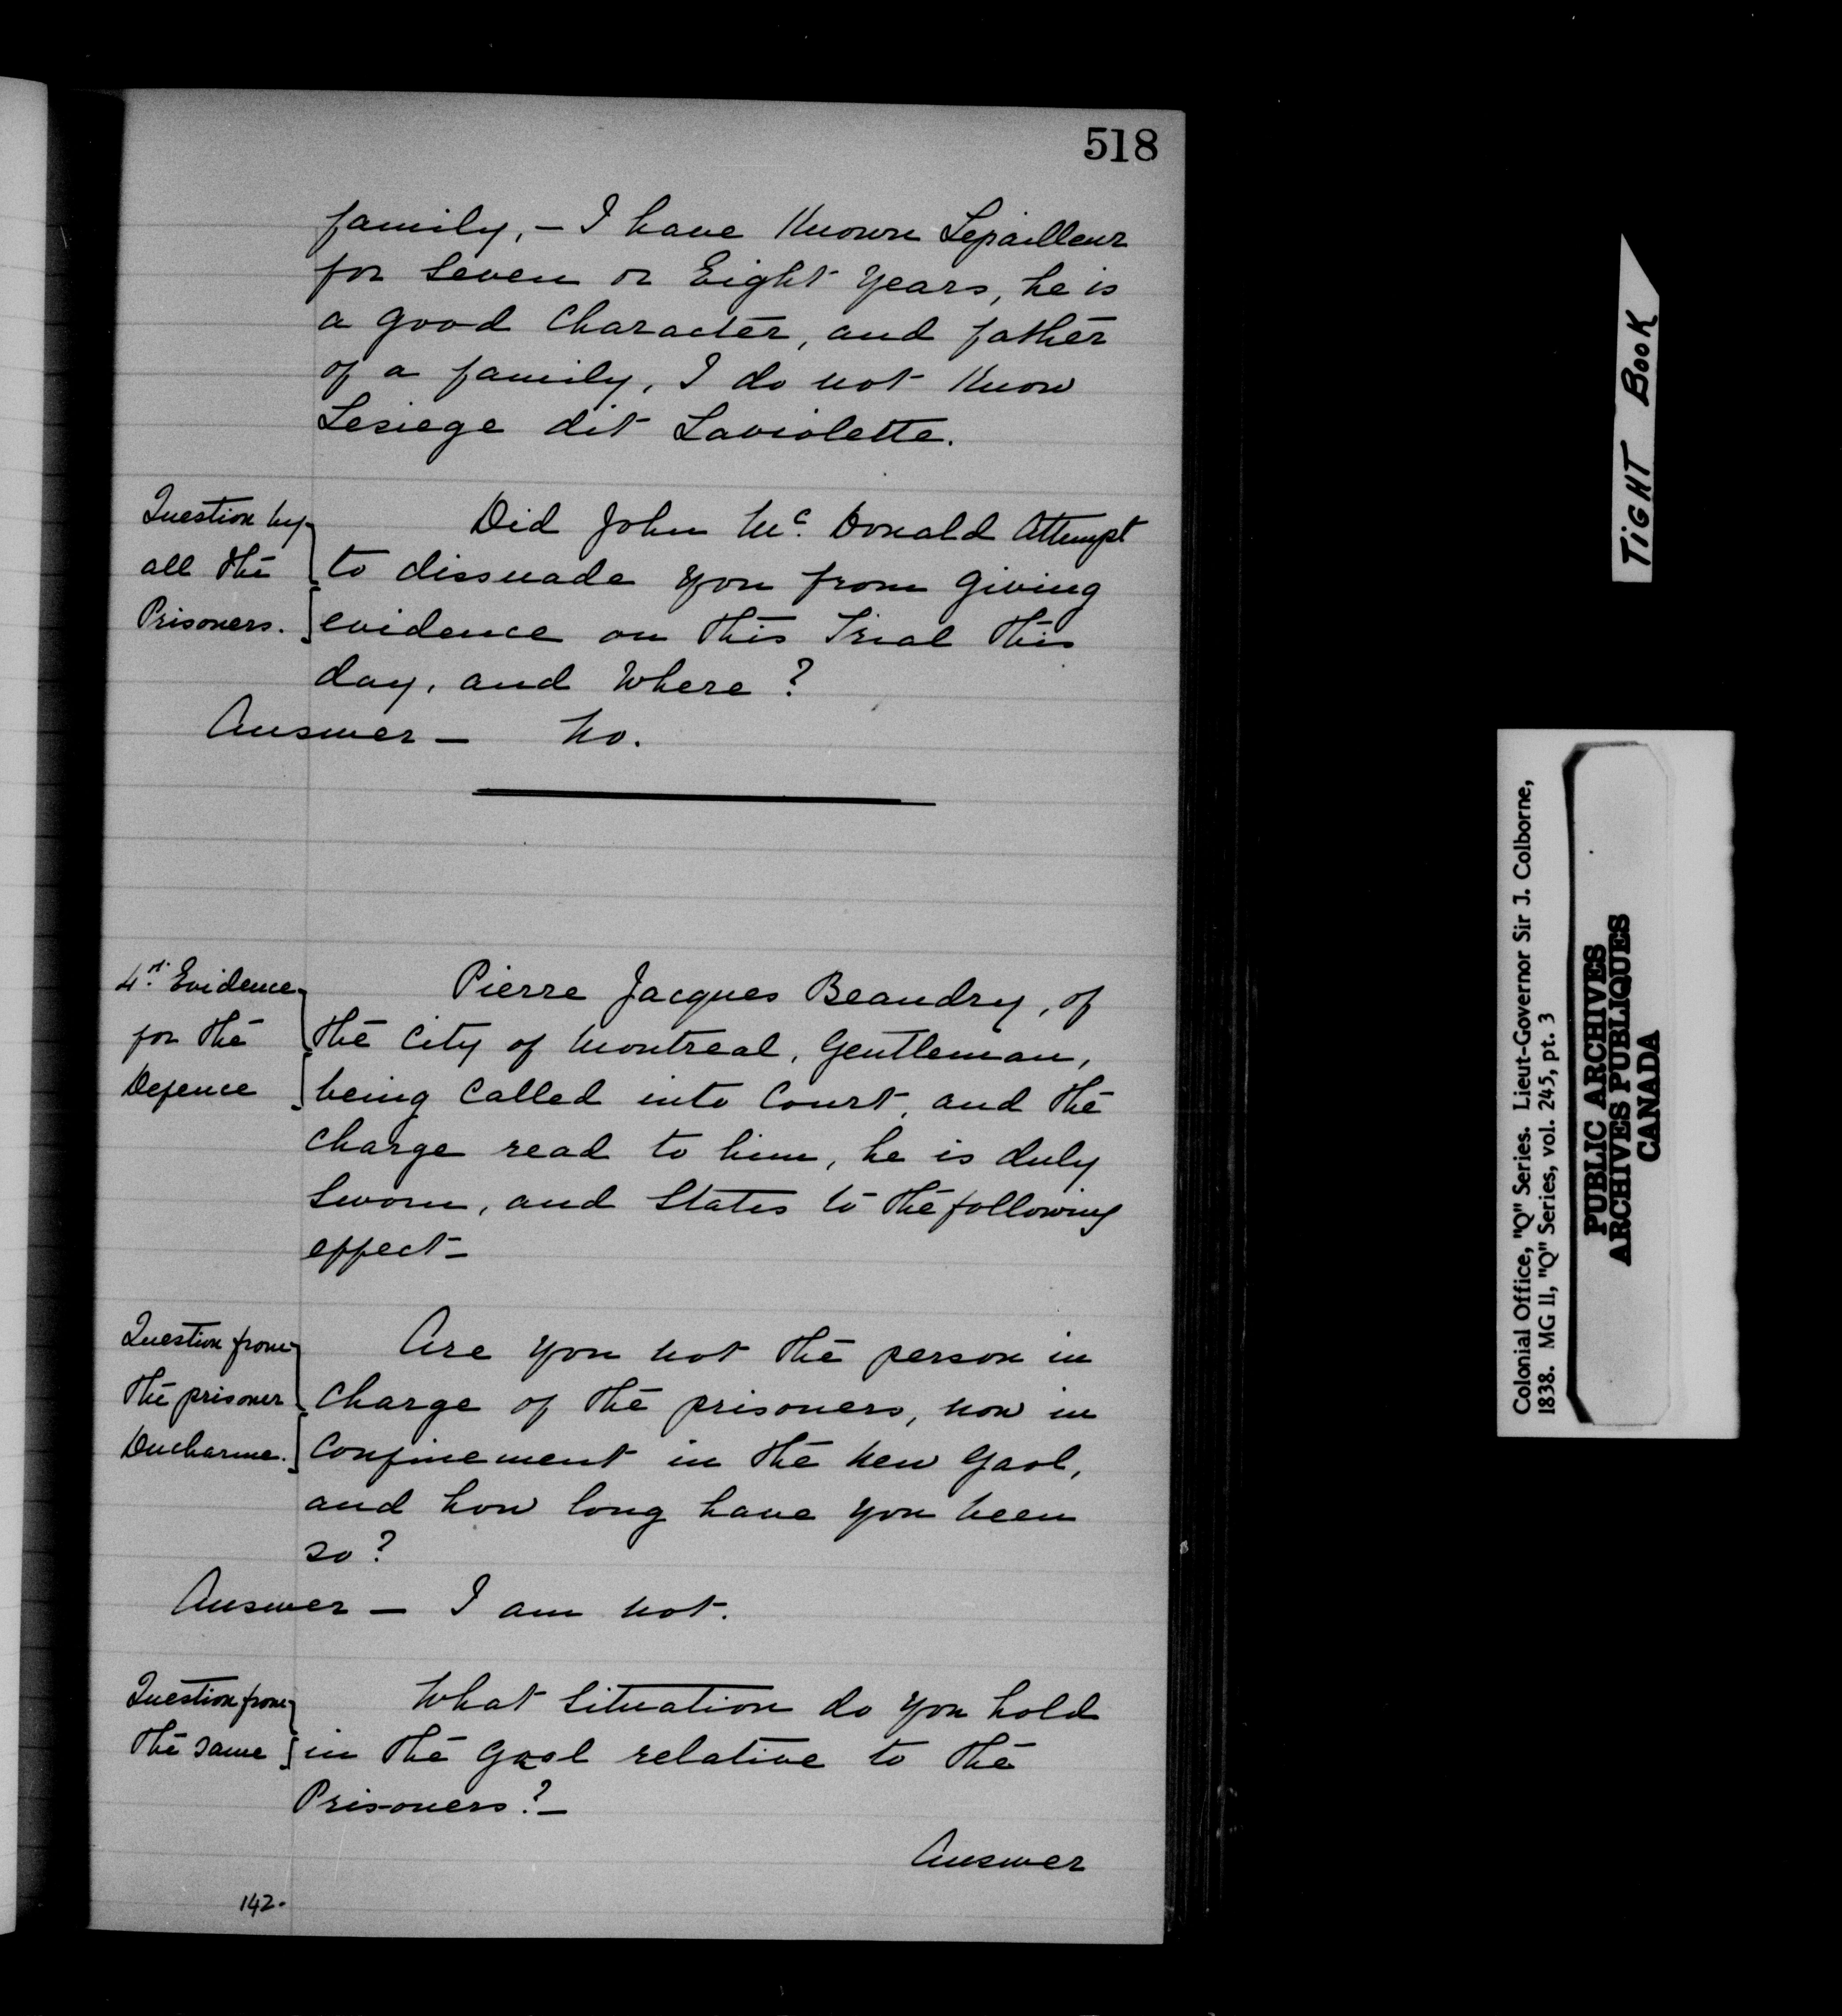 518
family, - I have Known Lepailleur
for Seven or Eight Years, he is
a good Character, and father
of a family, I do not Know
Lesiege dit Laviolette.
Question by
all the
Prisoners.
Did John Mc. Donald Attempt
to dissuade you from giving
evidence on this Trial this
day, and Where?
Answer - No.
4th. Evidence
for the
Defence
Pierre Jacques Beaudry, of
the City of Montreal, Gentleman,
being Called into Court, and the
Charge read to him, he is duly
Sworn, and States to the following
effect -
Question from
the prisoner
Ducharme.
Are you not the person in
Charge of the prisoners, now in
Confinement in the New Gaol,
and how long have you been
so?
Answer - I am not.
Question from
the same
What Situation do you hold
in the Gaol relative to the
Prisoners? -
Answer
142.
TIGHT BOOK
Colonial Office, "Q" Series. Lieut-Governor Sir J. Colborne,
1838. MG 11, "Q" Series, vol. 245, pt. 3
PUBLIC ARCHIVES
ARCHIVES PUBLIQUES
CANADA